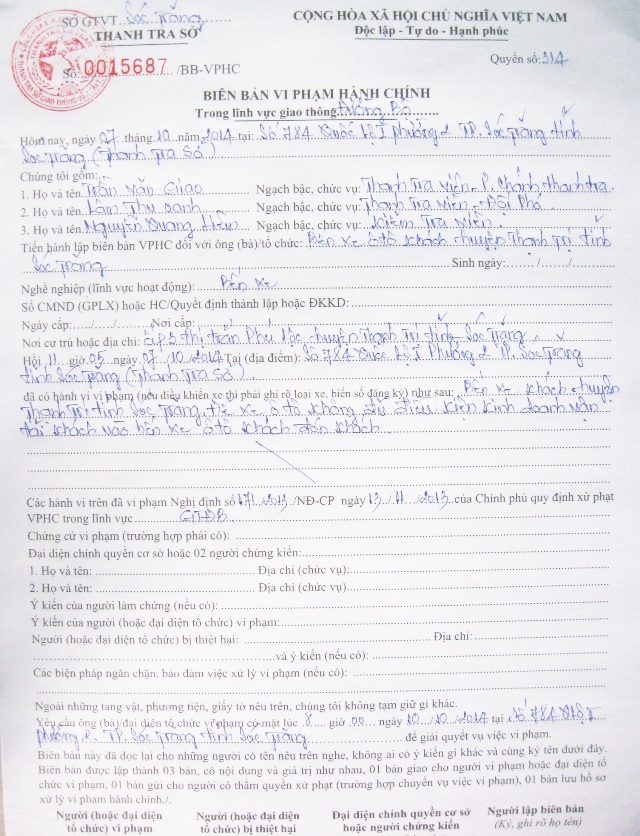 SỞ GTVT Sóc Trăng
THANH TRA SỞ
Số: 0015687 /BB-VPHC
CỘNG HÒA XÃ HỘI CHỦ NGHĨA VIỆT NAM
Độc lập - Tự do - Hạnh phúc
Quyển số: 314
BIÊN BẢN VI PHẠM HÀNH CHÍNH
Trong lĩnh vực giao thông Đường Bộ
Hôm nay, ngày 07 tháng 10 năm 2014 tại: Số 784 Quốc lộ I phường 2 TP. Sóc Trăng tỉnh
Sóc Trăng (Thanh Tra Sở)
Chúng tôi gồm:
1. Họ và tên Trần Văn Giao Ngạch bậc, chức vụ: Thanh Tra viên - P. Chánh thanh tra.
2. Họ và tên Lâm Thu Oanh Ngạch bậc, chức vụ: Thanh Tra viên - Đội Phó
3. Họ và tên Nguyễn Quang Hiền Ngạch bậc, chức vụ: Kiểm Tra viên.
Tiến hành lập biên bản VPHC đối với ông (bà)/tổ chức: Bến xe ô tô khách huyện Thạnh Trị tỉnh
Sóc Trăng Sinh ngày: / /
Nghề nghiệp (lĩnh vực hoạt động): Bến xe
Số CMND (GPLX) hoặc HC/Quyết định thành lập hoặc ĐKKD:
Ngày cấp: / / Nơi cấp:
Nơi cư trú hoặc địa chỉ: ấp 3 thị trấn Phú Lộc, huyện Thạnh Trị tỉnh Sóc Trăng
Hồi 11 giờ 05 ngày 07/10/2014 Tại (địa điểm): Số 784 Quốc lộ I Phường 2 TP. Sóc Trăng
tỉnh Sóc Trăng (Thanh Tra Sở).
đã có hành vi vi phạm (nếu điều khiển xe thì phải ghi rõ loại xe, biển số đăng ký) như sau: Bến xe khách huyện
Thạnh Trị tỉnh Sóc Trăng để xe ô tô không đủ điều kiện kinh doanh vận
tải khách vào bến xe ô tô khách đón khách
Các hành vi trên đã vi phạm Nghị định số 171/2013/NĐ-CP ngày 13/11/2013 của Chính phủ quy định xử phạt
VPHC trong lĩnh vực GTĐB
Chứng cứ vi phạm (trường hợp phải có):
Đại diện chính quyền cơ sở hoặc 02 người chứng kiến:
1. Họ và tên: Địa chỉ (chức vụ):
2. Họ và tên: Địa chỉ (chức vụ)
Ý kiến của người làm chứng (nếu có):
Ý kiến của người (hoặc đại diện tổ chức) vi phạm:
Người (hoặc đại diện tổ chức) bị thiệt hại: Địa chỉ:
và ý kiến (nếu có):
Các biện pháp ngăn chặn, bảo đảm việc xử lý vi phạm (nếu có):
Ngoài những tang vật, phương tiện, giấy tờ nêu trên, chúng tôi không tạm giữ gì khác.
Yêu cầu ông (bà)/đại diện tổ chức vi phạm có mặt lúc 8 giờ 00 ngày 10/10/2014 tại Số 784 Quốc lộ I
phường 2. TP. Sóc Trăng tỉnh Sóc Trăng để giải quyết vụ việc vi phạm.
Biên bản này đã đọc lại cho những người có tên nêu trên nghe, không ai có ý kiến gì khác và cùng ký tên dưới đây.
Biên bản được lập thành 03 bản, có nội dung và giá trị như nhau, 01 bản giao cho người vi phạm hoặc đại diện tổ
chức vi phạm, 01 bản gửi cho người có thẩm quyền xử phạt (trường hợp chuyển vụ việc vi phạm), 01 bản lưu hồ sơ
xử lý vi phạm hành chính./.
Người (hoặc đại diện tổ chức) vi phạm
Người (hoặc đại diện tổ chức) bị thiệt hại
Đại diện chính quyền cơ sở hoặc người chứng kiến
Người lập biên bản
(Ký, ghi rõ họ tên)